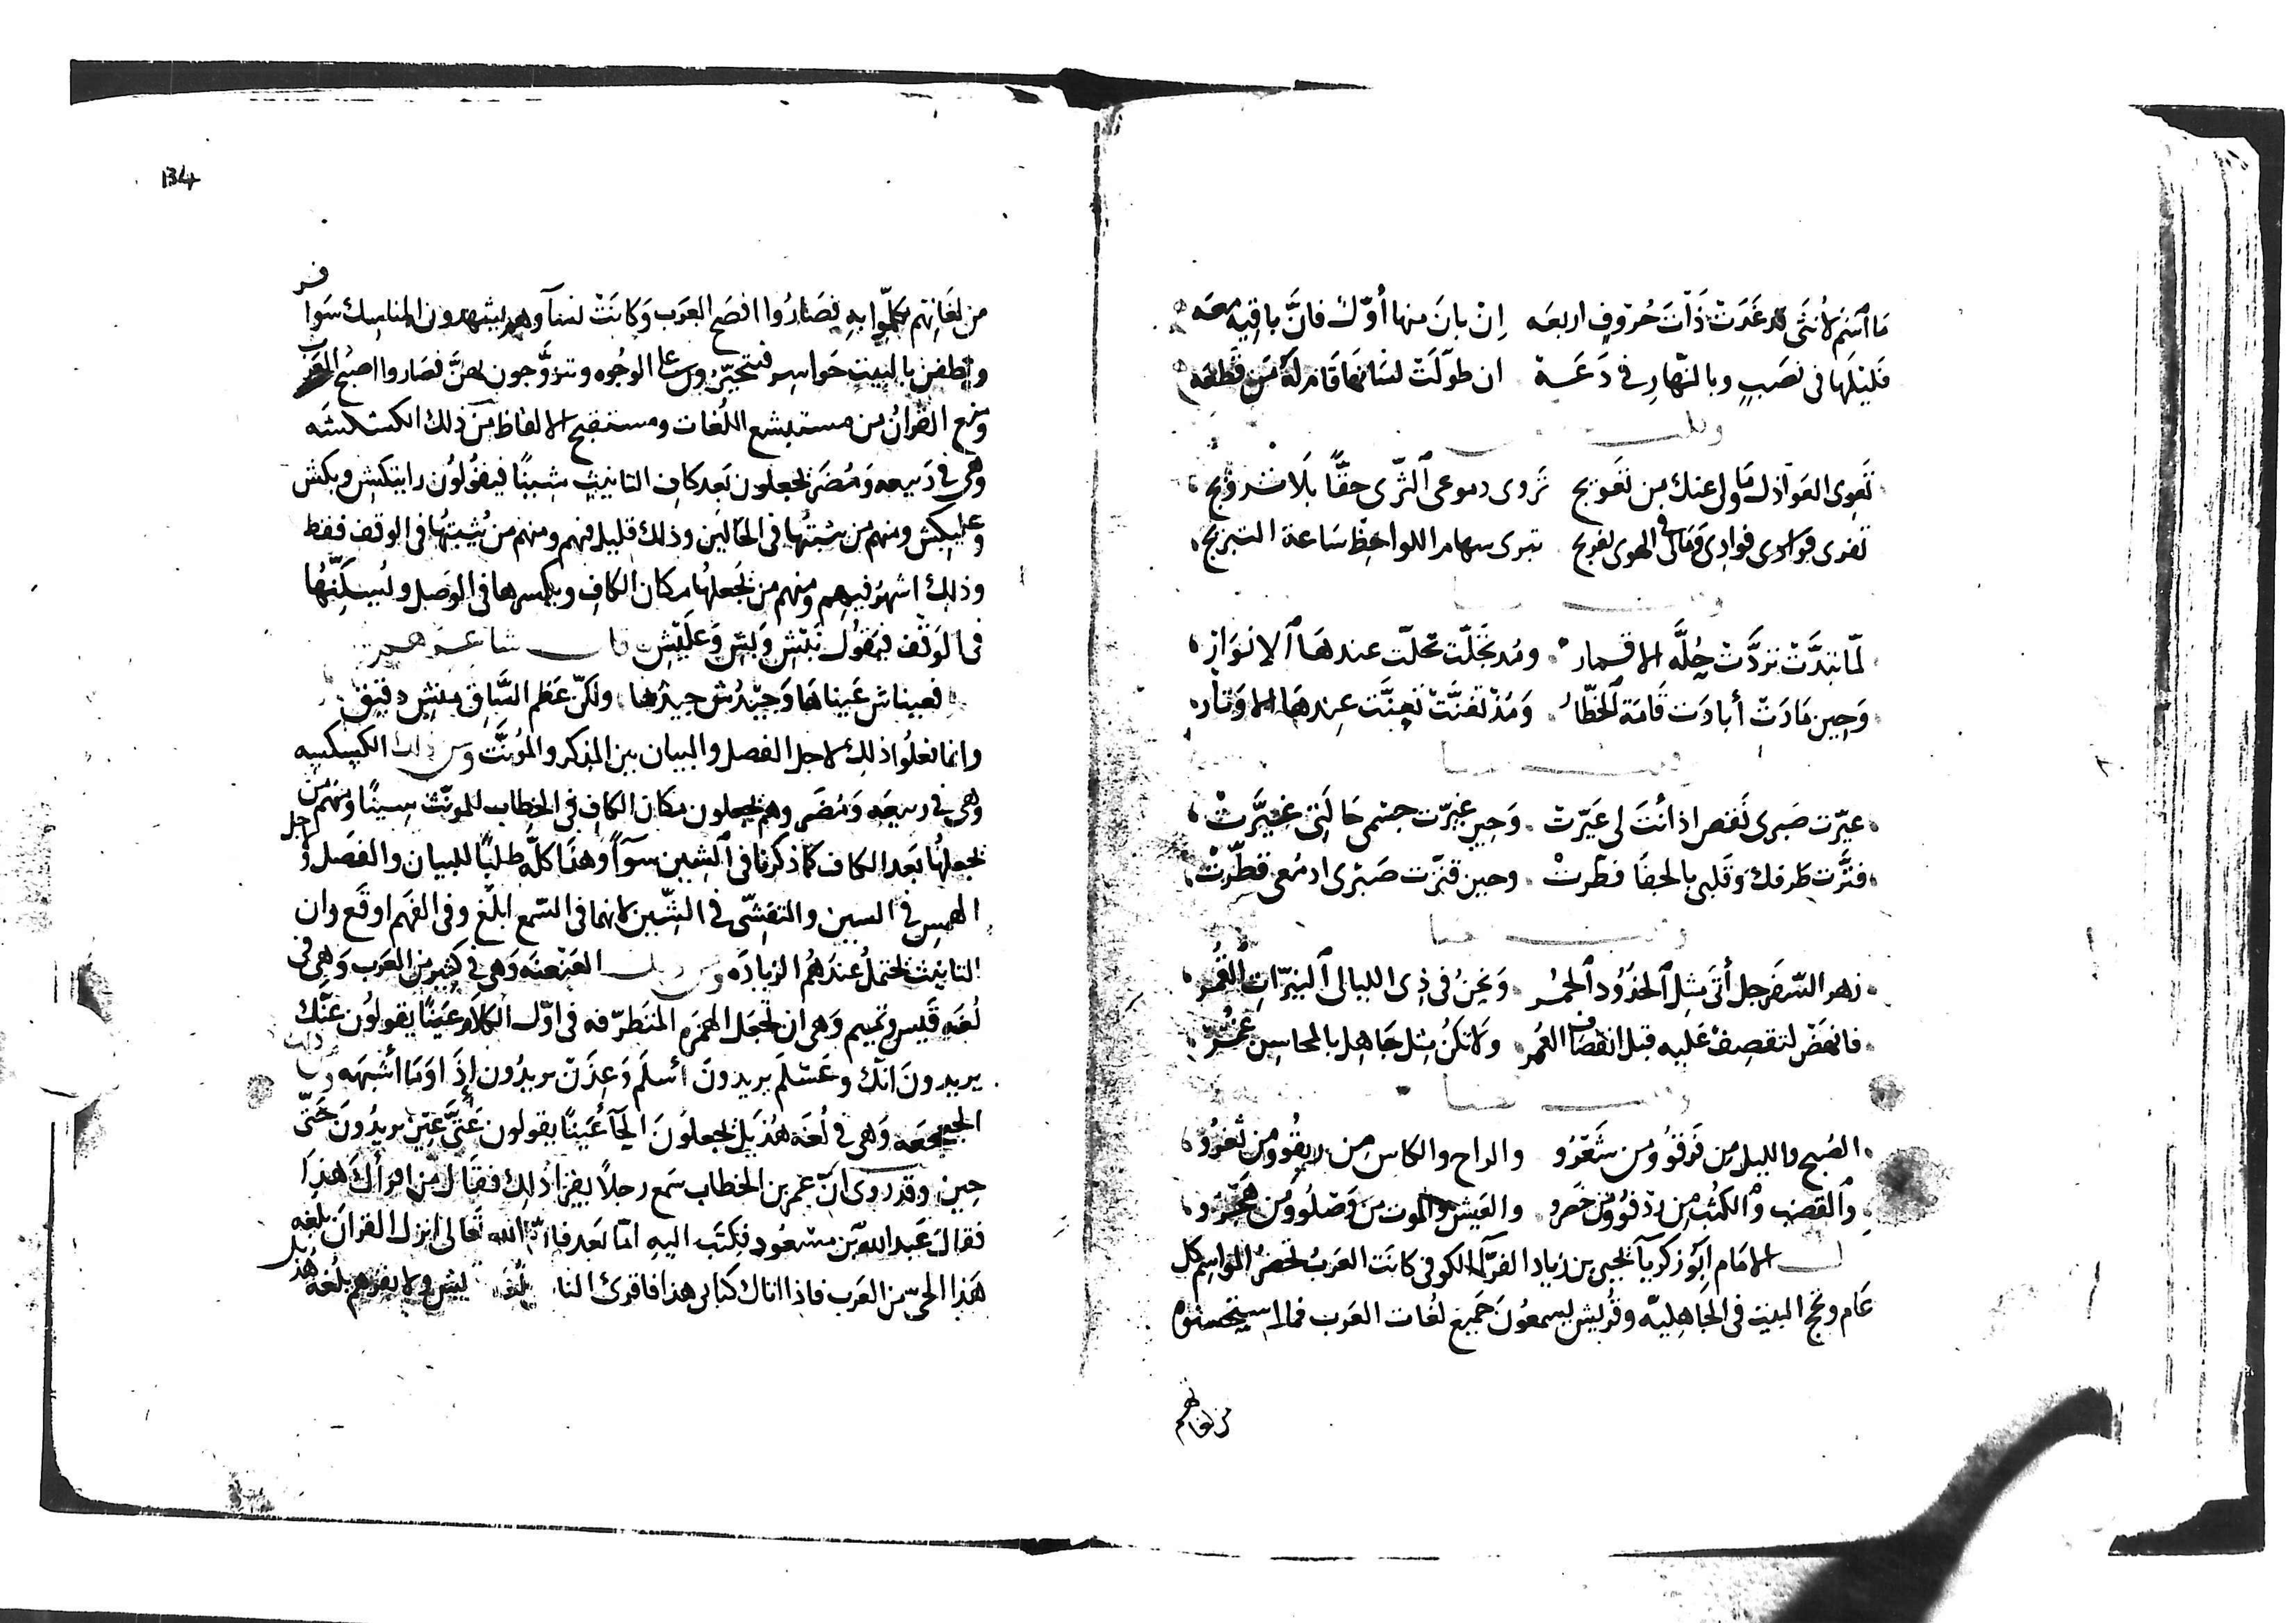 ما اسم لأنثى قد غَدَتْ ذَاتَ حُرُوفٍ اربعه إِنْ بانَ منها أوّلٌ فانَّ باقيه معه
فليلها فى نصب وبالنهار فى دَعَة ان طوّلَتْ لسانها قام له من قطعه
تقوى العواذل ما ولى عنك من تعويج تروى دموعى الثَّرى حقًّا بلا
تفرى فؤادى فوادى وما لى فى الهوى تفريج تبرى سهام اللواحظ ساعة التبريج
لمّا تبدَّتْ تردَّتْ حُلَّه الاقمار ومذ تجلّت تحلّت عندها الانوار
وَحين مَادَتْ أبادَت قامَة الخطّار وَمُذْ تغنَّتْ تعنَّت عندها الاوتار
عيّرت صبرى نقص اذ أنتَ لى عَيّرت وَحين غيّرت جسمى حَالتى غيَّرتْ
فتَّرت طَرفك وَقلبى بالجفا فطّرتْ وحين قتّرت صَبْرى ادمُعى قطّرتْ
زهر السّفرجل أتَى مثل الخدُود الحُمْر وَنحنُ فى ذى الليالى النيّرات القُمْر
فانهَضْ لنقصفْ عَليه قبل انقصاف العُمر ولا تكنْ مثل جَاهل بالمحاسن غُمْر
الصُبح والليل من فَرقُو ومن شَعْرُو والراح والكاس من ريقُو ومن ثَغرُو
والقضب والكثب من ردفُو ومن خصرو والعَيش والموت من وَصْلُو ومن هَجْرُو
الامَام أبو زكريآ يحيى بن زياد الفرّآ الكوفى كانَت العَربُ تحضر المواسم كل
عَام وتحج البيت فى الجَاهليّه وقُريش يسمعُونَ جَميعَ لغات العَرب فما استحسنوه
من لغاتهم
134
من لغَاتهم تكلّموا به فصَارُوا افصَح العَرب وَكانَتْ نسآوهم يشهدون المناسك سَوافر
ويطفن بالبيت حَواسر فتتخيّر الوجُوه وتتزوَّجون بهنَّ فصَاروا اصبح العرب
القرآنُ من مستبشع اللُغات ومستقبح الالفاظ من ذلك الكشكشَه
وَهى فى ربيعه وَمُضَر يجعلون بَعد كاف التانيث شينًا فيقُولُون رايتكِش وبكِش
وعليكِش ومنهم من يثبتُها فى الحَالين وذلك قليل فيهم ومنهم من يُثبتُها فى الوقف فقط
وذلك اشهرُ فيهم ومنهم من يَجعلهُا مكان الكاف ويكسرها فى الوَصل ويُسكِّنُها
فى الوَقف فيقول وَبِش وَعلَيْش قال شاعرهم
فعيناش عَيناها وَجيْدُش جيدُها ولكنّ عَظم السَّاق منشِ دقيق
وانما فعلُوا ذلك لاجل الفصل والبيان بين المذكر والمؤنّث ومن ذلك الكسكسه
وَهى فى ربيعه وَمُضَر وهم يجعلون مكان الكاف فى الخطاب للمونّث سينًا ومنهم من
يجعلهُا بَعد الكاف كما ذكرنا فى الشين سَوآ وهذا كلّه طلبًا للبيان والفصل ولاجل
الهمس فى السين والتفشّى فى الشّين لانهما فى السَّمع ابلَغ وفى الفهم اوقَع وان
التانيث يحتملُ عندهُم الزيادَه ومن ذلك العَنْعنَه وَهى فى كثير من العَرب وَهى فى
لُغَه قَيس وتميم وَهى ان تجعَل الهمزه المتَطرّفه فى اوّل الكلام عَينًا يقولُون عَنَّك
يريدونَ انّك وعَسْلَم يريدونَ أسلَم وَعِذَنْ يريدُون إذَا وَمَا أشبهَه ومن ذلك
الفحفحَه وَهى فى لُغَه هُذَيل يجعلُونَ الحآ عَينًا يقولون عَتَّى عِين يريدُونَ حَتّى
حين وقد روى انّ عمر بن الخطاب سَمع رجلاً يقرا ذلك فقال من اقرأك هذا
فقال عَبد الله بن مسْعُود فكتَب اليه امّا بَعد فانّ الله تعَالى انزل القرآنَ بلغه
هَذا الحىّ من العَرب فاذا اتاك كتابى هذا فاقرى النا بلُغ يش ولا يقرهم بلُغه هُذيل